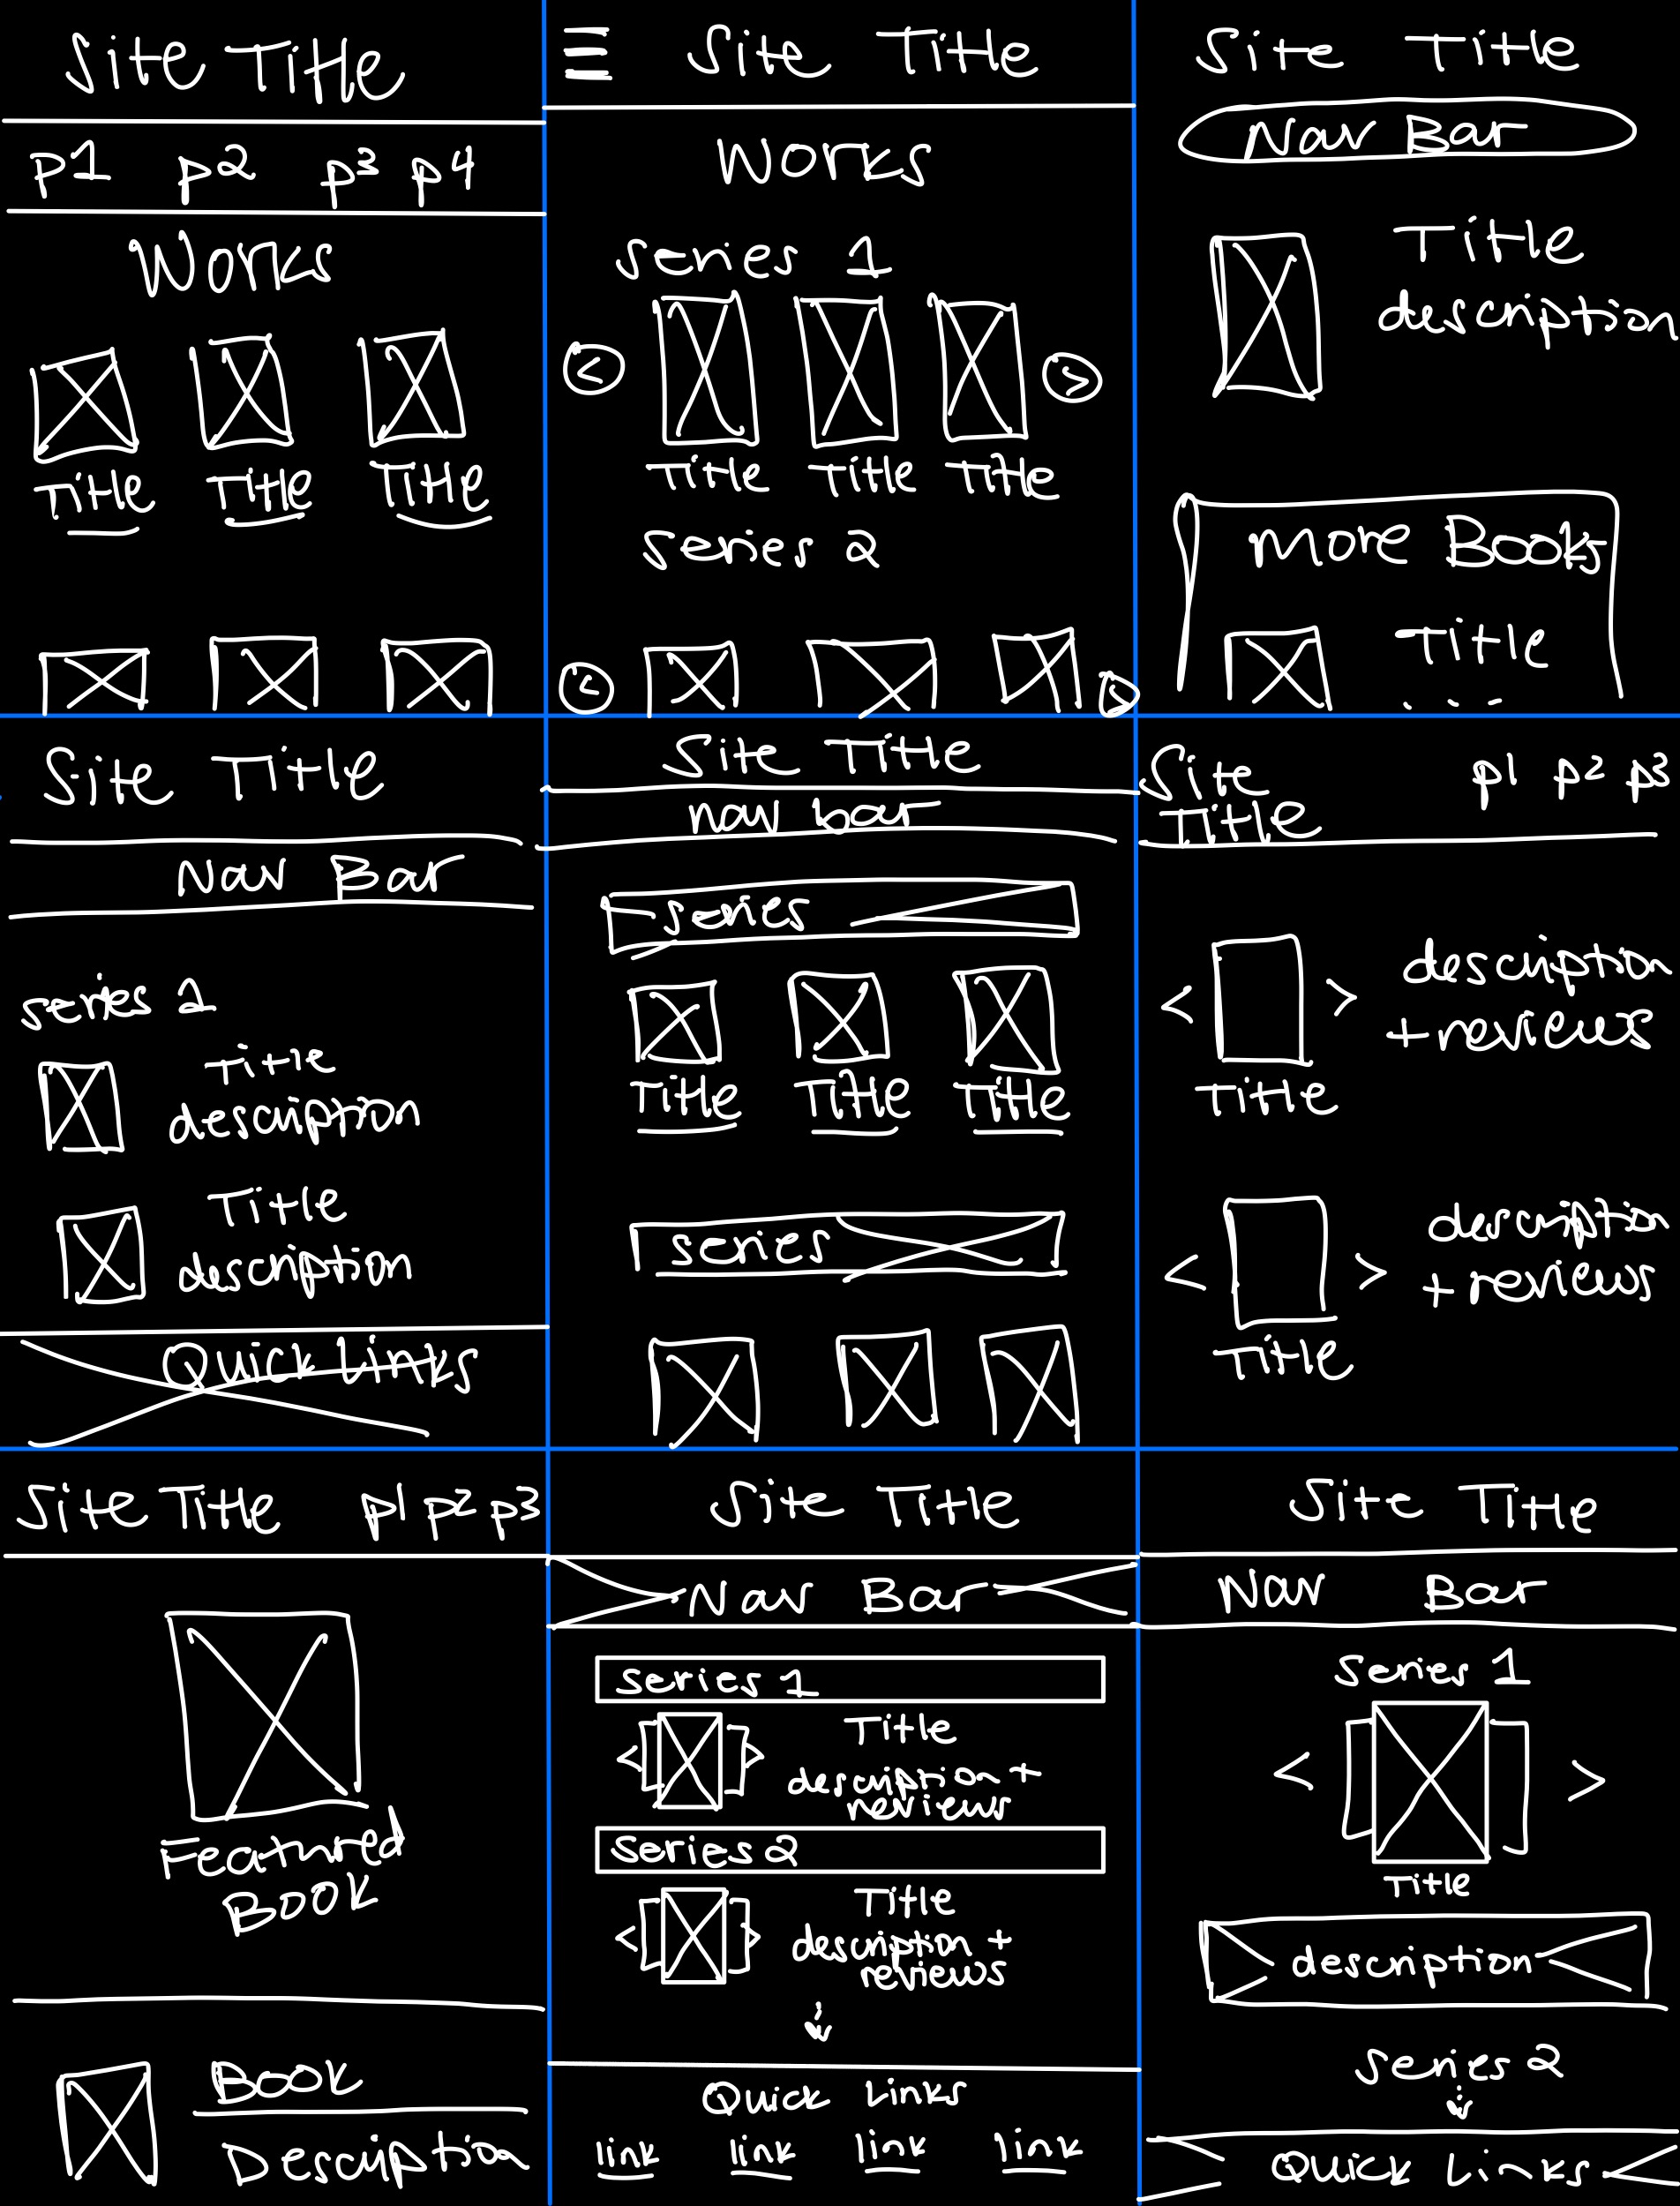 Site Title
p1 p2 p3 p4
Works
Title Title Title
Site Title
Works
series 1
< >
Title Title Title
series 2
< >
Site Title
Nav Bar
Title
description
More Books
Title
...
Site Title
Nav Bar
series 2
Title
description
Title
description
Quick Links
Site Title
nav bar
series
Title Title Title
series
Site p1 p2 p3
Title
< > description
+ reviews
Title
< > description
+ reviews
Title
Site Title p1 p2 p3
Featured
Book
Book
Description
Site Title
Nav Bar
series 1
Title
< > description +
reviews
series 2
Title
< > description +
reviews
Quick Links
link link link link
Site Title
Nav Bar
series 1
< >
Title
description
series 2
Quick Links